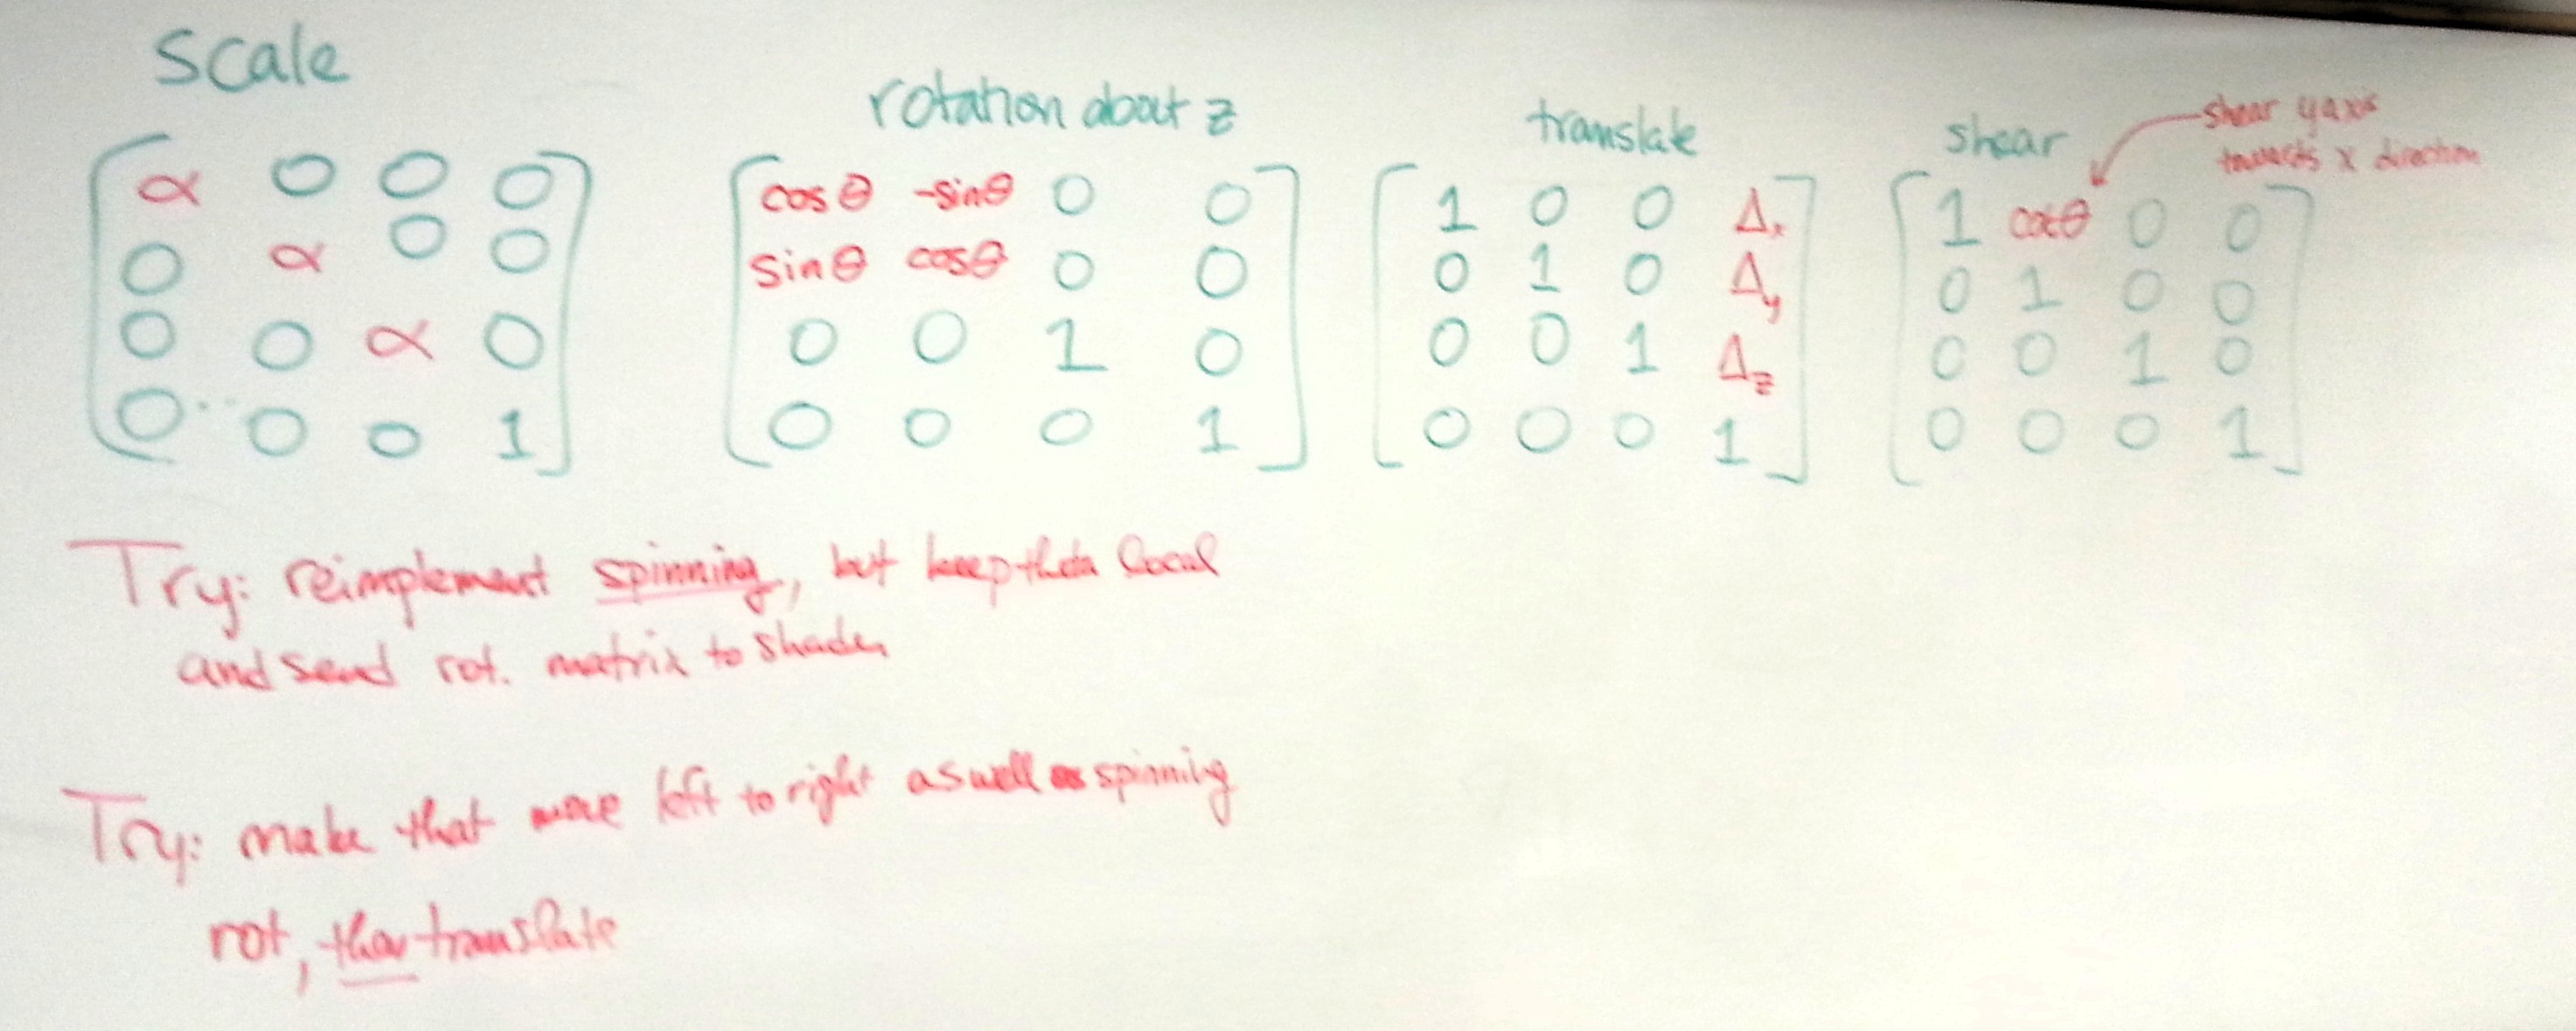 scale
α 0 0 0
0 α 0 0
0 0 α 0
0 0 0 1
rotation about z
cosθ -sinθ 0 0
sinθ cosθ 0 0
0 0 1 0
0 0 0 1
translate
1 0 0 Δx
0 1 0 Δy
0 0 1 Δz
0 0 0 1
shear
shear y axis
towards x direction
1 cotθ 0 0
0 1 0 0
0 0 1 0
0 0 0 1
Try: reimplement spinning, but keep theta local
and send rot. matrix to shader
Try: make that move left to right as well as spinning
rot, then translate